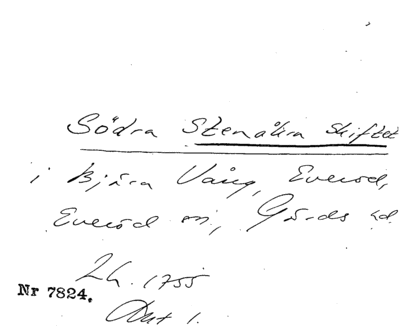 Södra Stenåkra Skiftet
i Bjära Vång, Everöd,
Everöd sn, Gärds hd
Lh. 1755
Nr 7824.
Akt 1.